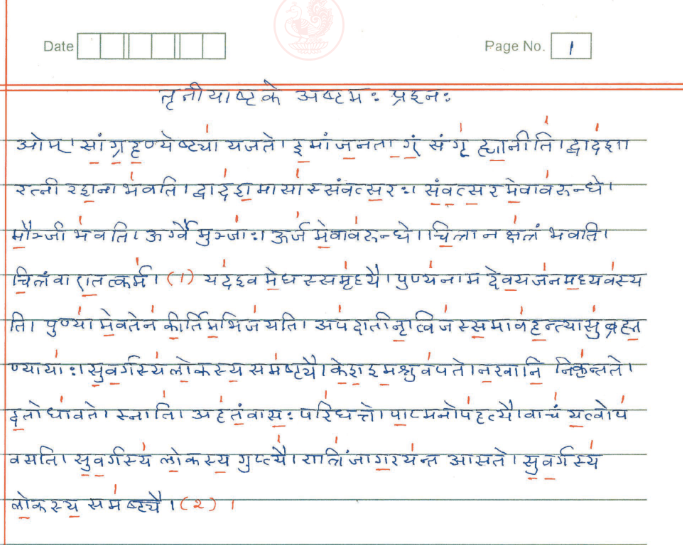 Date Page No. 1
तृतीयाष्टके अष्टमः प्रश्नः
ओम् । सांग्रहण्येष्ट्या यजते । इमां जनतागुं संगृह्णानीति । द्वादशा
रत्नी रशना भवति । द्वादश मासास्संवत्सरः । संवत्सरमेवावरुन्धे ।
मौञ्जी भवति । ऊर्ग्वै मुञ्जाः । ऊर्जमेवावरुन्धे । चित्रा नक्षत्रं भवति ।
चित्रं वा एतत्कर्म । (१) यदश्वमेधस्समृद्ध्यै । पुण्यनाम देवयजनमध्यवस्य
ति । पुण्यामेवतेन कीर्तिमभिजयति । अपदातीनृत्विजस्समावहन्त्यासुब्रह्म
ण्यायाः । सुवर्गस्य लोकस्य समष्ट्यै । केशश्मश्रु वपते । नखानि निकृन्तते ।
दतो धावते । स्नाति । अहतं वासः परिधत्ते । पाप्मनोपहत्यै । वाचं यत्वोप
वसति । सुवर्गस्य लोकस्य गुप्त्यै । रात्रिं जागरयन्त आसते । सुवर्गस्य
लोकस्य समष्ट्यै । (२) ।